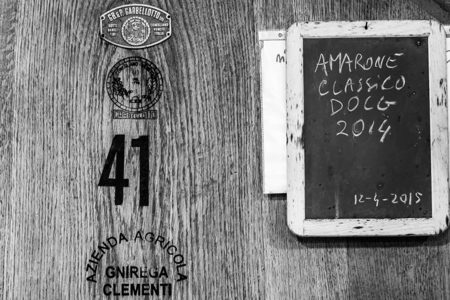 GARBELLOTTO
41
AZIENDA AGRICOLA
GNIREGA
CLEMENTI
AMARONE
CLASSICO
DOCG
2014
12-4-2015